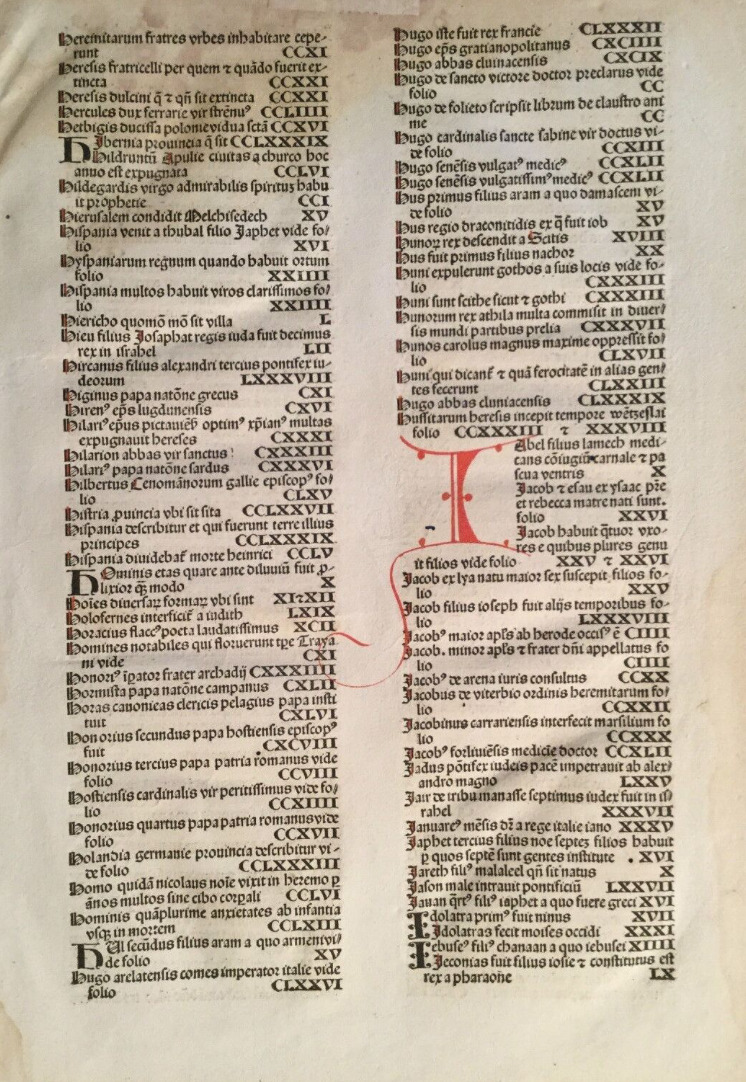 Heremitarum fratres vrbes inhabitare cepe-
runt CCXI
Heresis fratricelli per quem ⁊ quādo fuerit ex-
tincta CCXXI
Heresis dulcini q̄ ⁊ qn̄ sit extincta CCXXI
Hercules dux ferrarie vir strēnuꝰ CCLIIII
Hetbigis ducissa polome vidua sctā CCXVI
HIbernia prouincia q̄ sit CCLXXXIX
Hildruntū Apulie ciuitas a thurco hoc
anuo est expugnata CCLVI
Hildegardis virgo admirabilis spiritus habu
it prophetie CCI
Hierusalem condidit Melchisedech XV
Hispania venit a thubal filio Japhet vide fo/
lio XVI
Hyspaniarum regnum quando habuit ortum
folio XXIIII
Hispania multos habuit viros clarissimos fo/
lio XXIIII
Hiericho quomō mō sit villa L
Hieu filius Josaphat regis iuda fuit decimus
rex in israhel LII
Hircanus filius alexandri tercius pontifex iu-
deorum LXXXVIII
Higinus papa natōne grecus CXI
Hirenꝰ ep̄s lugdunensis CXVI
Hilariꝰ ep̄us pictauiēn̄ optimꝰ xp̄ianꝰ multas
expugnauit hereses CXXXI
Hilarion abbas vir sanctus CXXXII
Hilariꝰ papa natōne sardus CXXXVI
Hilbertus Cenomānorum gallie episcopꝰ fo/
lio CLXV
Histria ꝓuincia vbi sit sita CCLXXVII
Hispania describitur et qui fuerunt terre illius
principes CCLXXXIX
Hispania diuidebat̄ morte heinrici CCLV
HOminis etas quare ante diluuiū fuit ꝓ-
lixior qꝫ modo X
Hoīes diuersaꝝ formaꝝ vbi sint XI⁊XII
Holofernes interficit̄ a iudith LXIX
Horacius flaccꝰ poeta laudatissimus XCII
Homines notabiles qui floruerunt tp̄e Traya
ni vide CXI
Honoriꝰ īp̄ator frater archadij CXXXIIII
Hormista papa natōne campanus CXLII
Horas canonicas clericis pelagius papa insti
tuit CXLVI
Honorius secundus papa hostiensis episcopꝰ
fuit CXCVIII
Honorius tercius papa patria romanus vide
folio CCVIII
Hostiensis cardinalis vir peritissimus vide fo/
lio CCXIIII
Honorius quartus papa patria romanus vide
folio CCXVII
Holandia germanie prouincia describitur vi-
de folio CCLXXXIII
Homo quidā nicolaus noīe vixit in heremo ꝑ
ānos multos sine cibo corꝑali CCLVI
Hominis quāplurime anxietates ab infantia
vsqꝫ in mortem CCLXIII
HUl secūdus filius aram a quo armeni vi/
de folio XV
Hugo arelatensis comes imperator italie vide
folio CLXXVI
Hugo iste fuit rex francie CLXXXII
Hugo ep̄s gratianopolitanus CXCIIII
Hugo abbas cluinacensis CXCIX
Hugo de sancto victore doctor preclarus vide
folio CC
Hugo de folieto scripsit librum de claustro ani
me CC
Hugo cardinalis sancte sabine vir doctus vi-
de folio CCXIII
Hugo senēsis vulgatꝰ medicꝰ CCXLII
Hugo senēsis vulgatissimꝰ medicꝰ CCXLII
Hus primus filius aram a quo damasceni vi-
de folio XV
Hus regio draconitidis ex q̄ fuit iob XV
Hunoꝝ rex descendit a Scitis XVIII
Hus fuit primus filius nachor XX
Huni expulerunt gothos a suis locis vide fo-
lio CXXXIII
Huni sunt scithe sicut ⁊ gothi CXXXIII
Hunorum rex athila multa commisit in diuer/
sis mundi partibus prelia CXXXVII
Hunos carolus magnus maxime oppressit fo/
lio CLXVII
Huni qui dicant̄ ⁊ quā ferocitatē in alias gen/
tes fecerunt CLXXIII
Hugo abbas cluniacensis CLXXXIX
Hussitarum heresis incepit tempore wētzeslai
folio CCXXXIII ⁊ XXXVIII
IAbel filius lamech medi-
cans cōiugiū carnale ⁊ pa
scua ventris X
Jacob ⁊ esau ex ysaac p̄re
et rebecca matre nati sunt.
folio XXVI
Jacob habuit q̄tuor vxo-
res e quibus plures genu
it filios vide folio XXV ⁊ XXVI
Jacob ex lya natu maior sex suscepit filios fo-
lio XXV
Jacob filius ioseph fuit alijs temporibus fo-
lio LXXXVIII
Jacobꝰ maior apl̄s ab herode occisꝰ ē CIIII
Jacob. minor apl̄s ⁊ frater dn̄i appellatus fo
lio CIIII
Jacobꝰ de arena iuris consultus CCXX
Jacobus de viterbio ordinis heremitarum fo/
lio CCXXII
Jacobinus carrariensis interfecit marsilium fo
lio CCXXX
Jacobꝰ forliuiēsis medicīe doctor CCXLII
Jadus pōtifex iudeis pacē impetrauit ab alex/
andro magno LXXV
Jair de tribu manasse septimus iudex fuit in is/
rahel XXXVII
Januarꝰ mēsis dr̄ a rege italie iano XXXV
Japhet tercius filius noe septeꝫ filios habuit
ꝑ quos septē sunt gentes institute . XVI
Jareth filiꝰ malaleel qn̄ sit natus X
Jason male intrauit pontificiū LXXVII
Jauan q̄rtꝰ filiꝰ iaphet a quo fuere greci XVI
Idolatra primꝰ fuit ninus XVII
Idolatras fecit moises occidi XXXI
Iebuseꝰ filiꝰ chanaan a quo iebusei XIIII
Jeconias fuit filius iosie ⁊ constitutus est
rex a pharaone LX